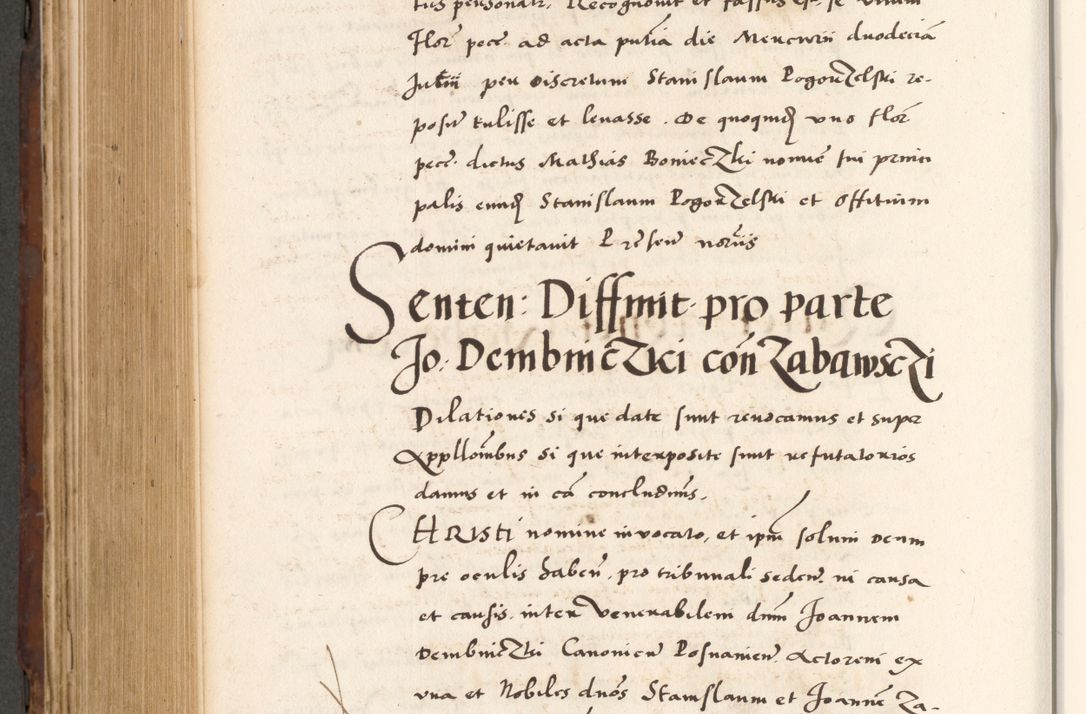 tus personalr. Recognovit et fassus est se unum
Flor pecc ad acta putia die Mercurii duodecia
Junii per Discretum Stanislaum Pogorzelski re-
posit tulisse et levasse. De quoquidem uno flor
pecc. dictus Mathias Bonieczki nomine sui princi
palis eundem Stanislaum Pogorzelski et Offitium
domini quietavit Presen noriis
Senten: Diffinit pro parte
Jo. Dembniczki con Zabawsczi
Dilationes si que date sunt revocamus et super
Appllombus si que interposite sunt refutatorios
damus et in ca concludimus.
CHRISti nomine invocato, et ipm solum Deum
pre oculis haben. pro tribunali seden. in causa
et causis. inter Venerabilem dnm Joannem
Dembniczki Canonicu Posnanien. Actorem ex
una et Nobiles dnos Stanislaum et Joanne Za-